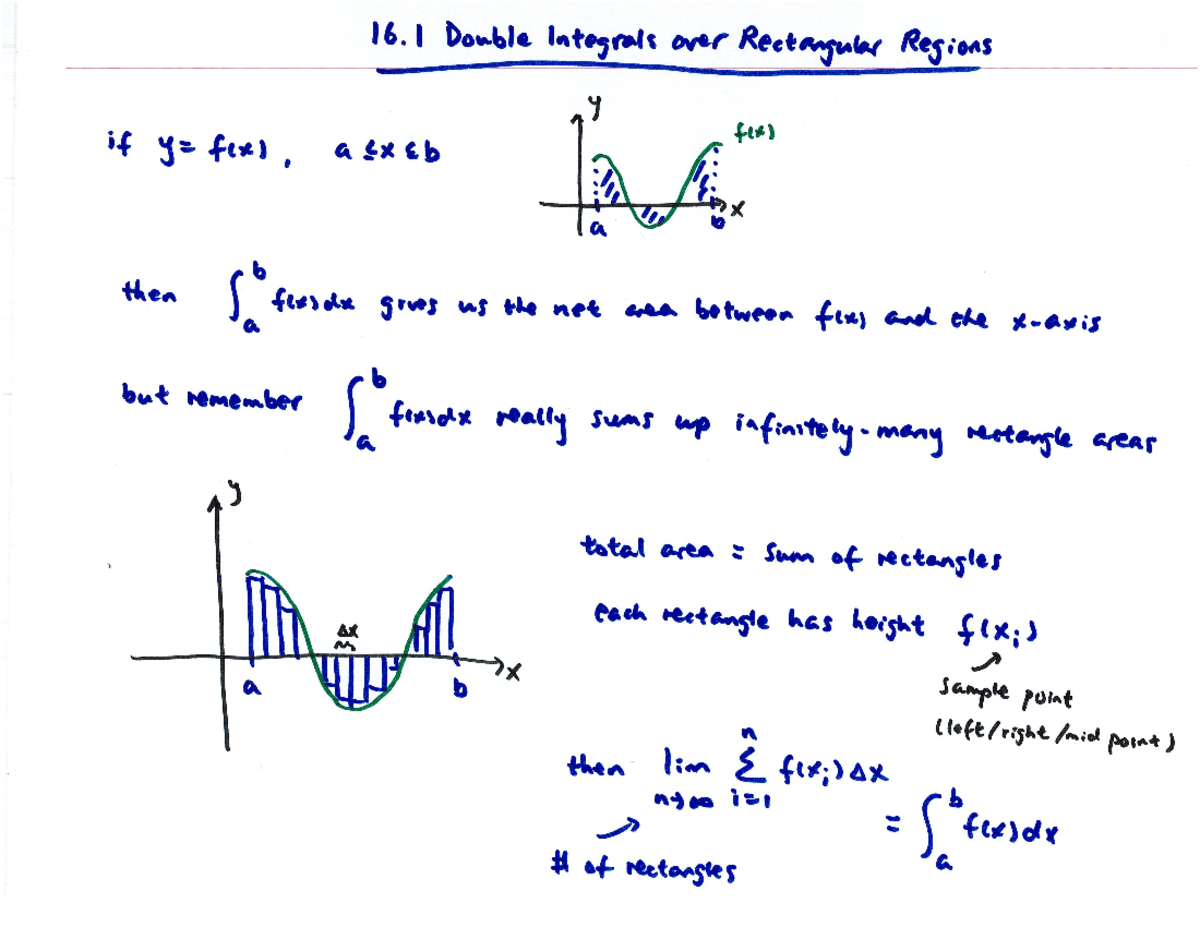 16.1 Double Integrals over Rectangular Regions
if y = f(x), a ≤ x ≤ b
y
f(x)
x
a
b
then ∫_a^b f(x)dx gives us the net area between f(x) and the x-axis
but remember ∫_a^b f(x)dx really sums up infinitely-many rectangle areas
y
total area = sum of rectangles
each rectangle has height f(x_i)
Δx
x
a
b
sample point
(left/right/mid point)
then lim_{n→∞} Σ_{i=1}^n f(x_i)Δx
= ∫_a^b f(x)dx
# of rectangles